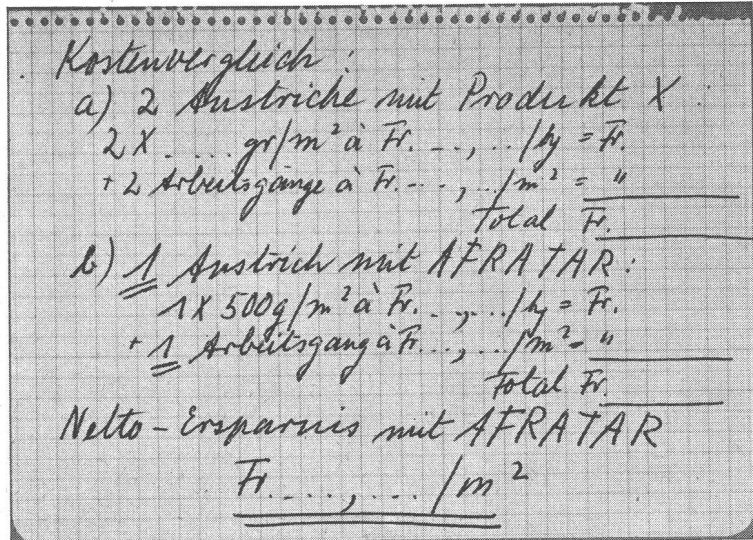 Kostenvergleich:
a) 2 Anstriche mit Produkt X
2 X .... gr/m² à Fr. ..., ../kg = Fr.
+ 2 Arbeitsgänge à Fr. ..., ../m² = "
Total Fr.
b) 1 Anstrich mit AFRATAR:
1 X 500g/m² à Fr. .., ../kg = Fr.
+ 1 Arbeitsgang à Fr. .., ../m² = "
Total Fr.
Netto-Ersparnis mit AFRATAR
Fr. ..., ... /m²